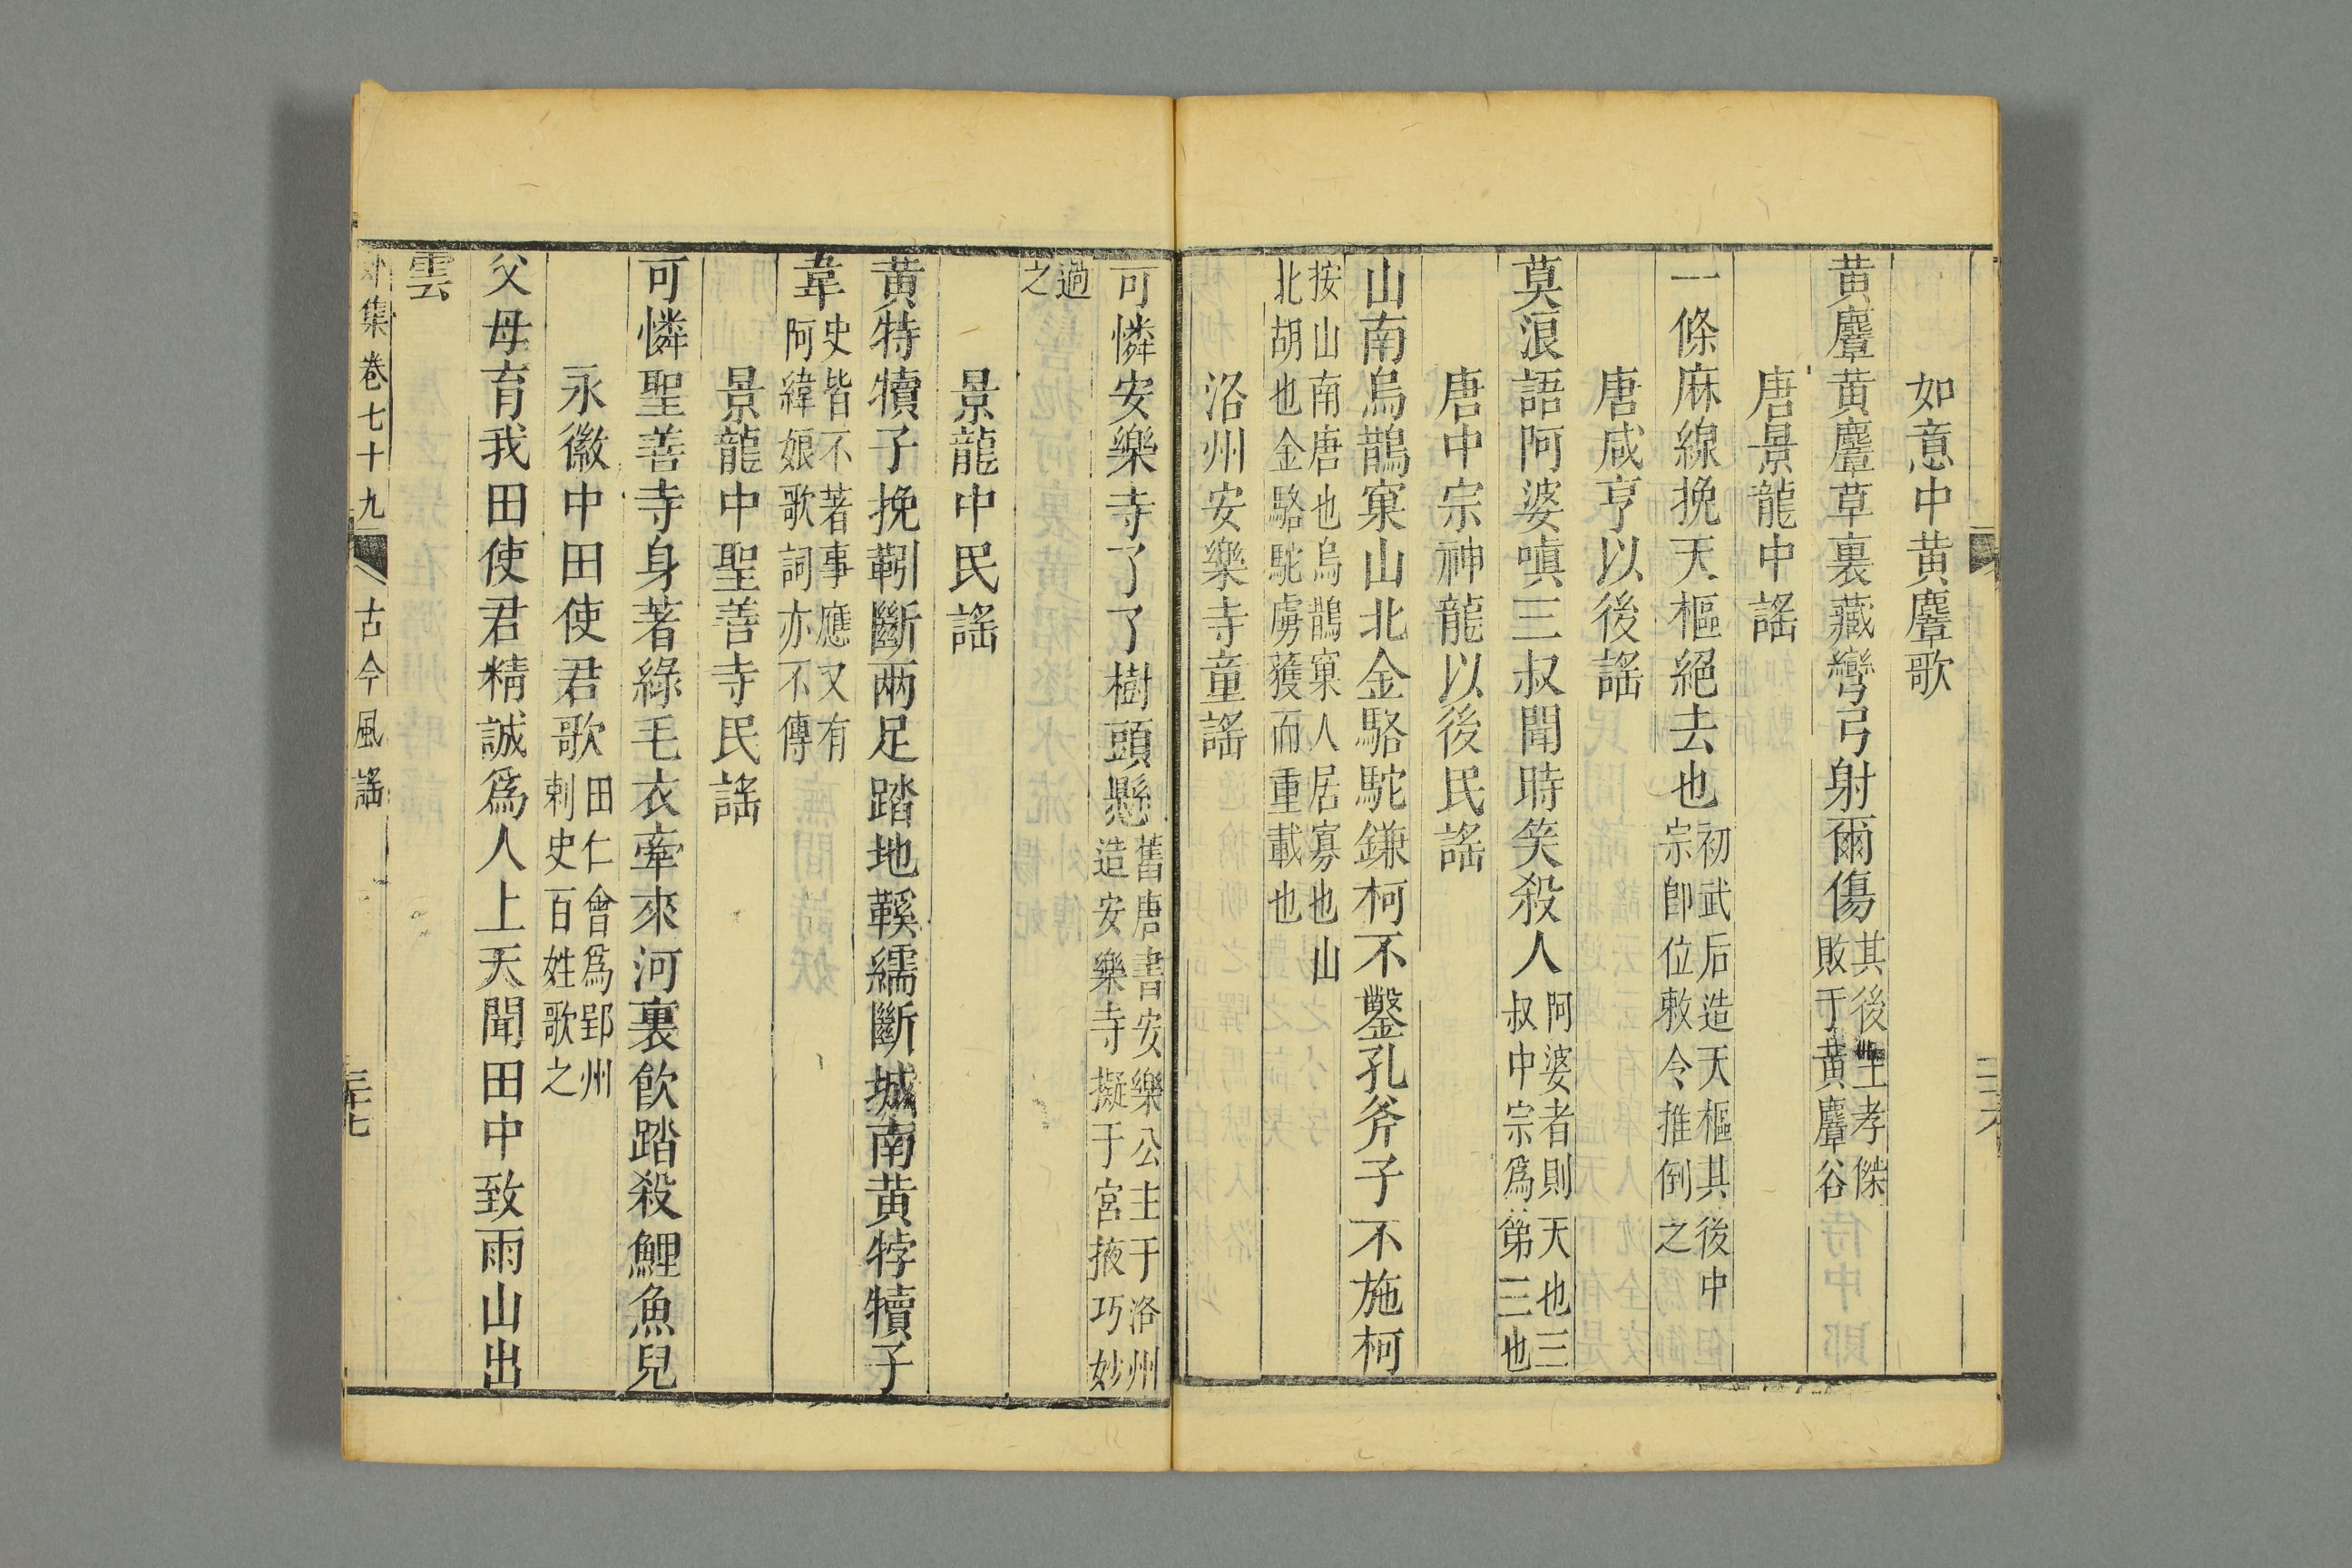 如意中黄麞歌
黄麞黄麞草裏藏彎弓射爾傷其後王孝傑敗于黄麞谷
唐景龍中謡
一條麻線挽天樞絕去也初武后造天樞其後中宗卽位敕令推倒之
唐咸亨以後謡
莫浪語阿婆嗔三叔聞時笑殺人阿婆者則天也三叔中宗爲第三也
唐中宗神龍以後民謡
山南烏鵲窠山北金駱駝鎌柯不鑿孔斧子不施柯
按山南唐也烏鵲窠人居寡也山北胡也金駱駝虜獲而重載也
洛州安樂寺童謡
可憐安樂寺了了樹頭懸舊唐書安樂公主于洛州造安樂寺擬于宮掖巧妙
過之
景龍中民謡
黄特犢子挽靷斷兩足踏地鞵繻斷城南黄牸犢子
韋史皆不著事應又有阿緯娘歌詞亦不傳
景龍中聖善寺民謡
可憐聖善寺身著綠毛衣牽來河裏飲踏殺鯉魚兒
永徽中田使君歌田仁會爲郢州刺史百姓歌之
父母育我田使君精誠爲人上天聞田中致雨山出
雲
外集卷七十九
古今風謡